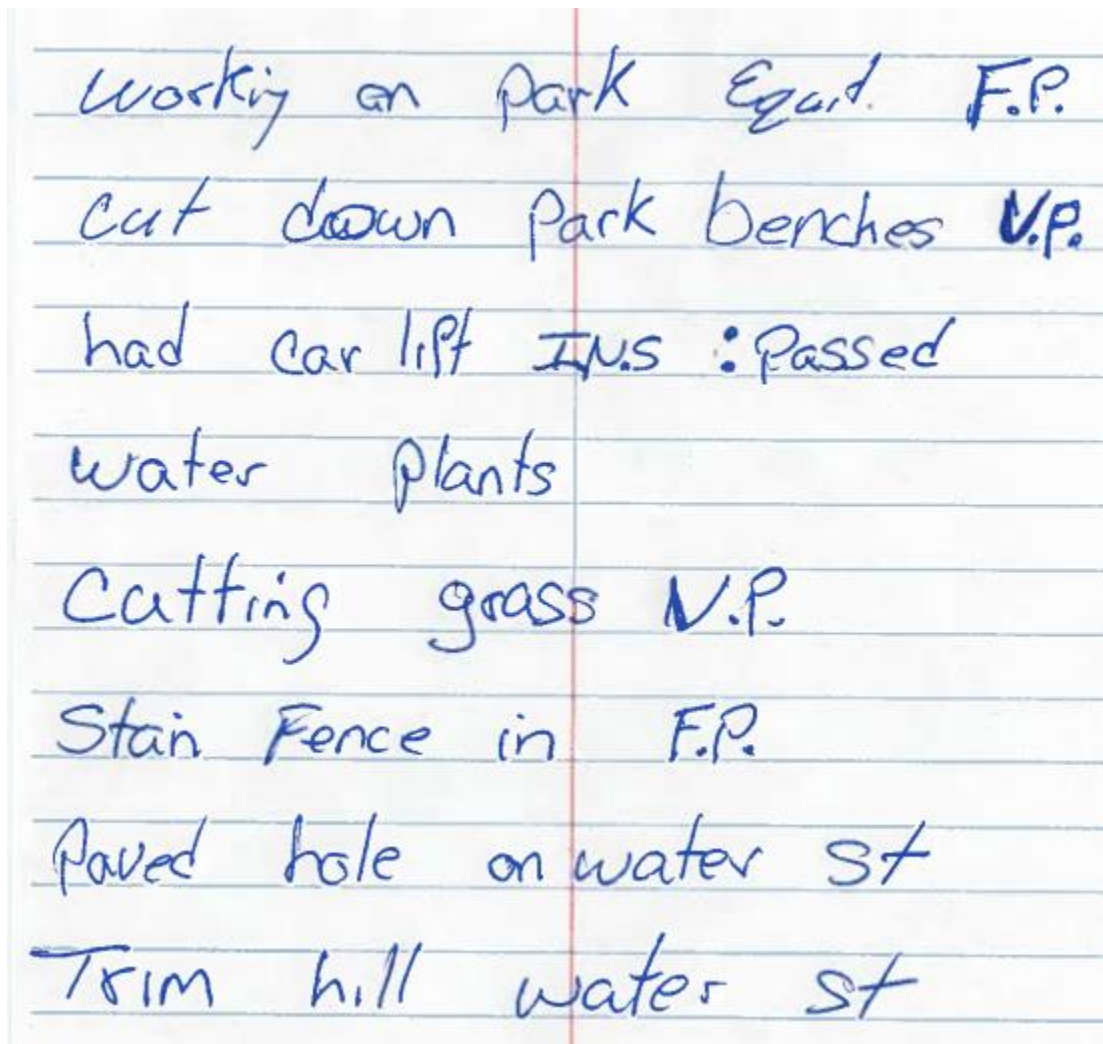 working on park Equit. F.P.
cut down park benches V.P.
had car lift INS : Passed
water plants
Cutting grass V.P.
Stain Fence in F.P.
Paved hole on water st
Trim hill water st